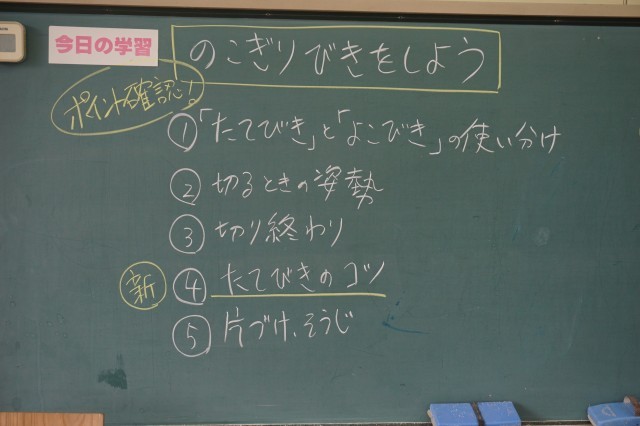 今日の学習
のこぎりびきをしよう
ポイント確認!
①「たてびき」と「よこびき」の使い分け
②切るときの姿勢
③切り終わり
新 ④たてびきのコツ
⑤片づけ、そうじ